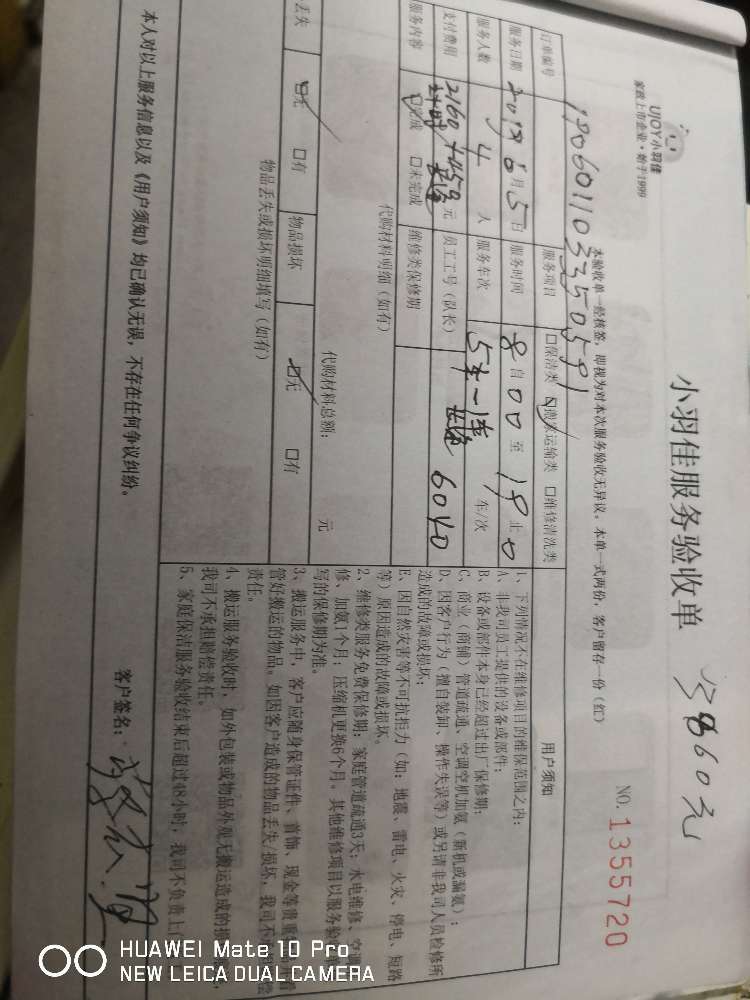 UJOY小羽佳
家政上市企业·始于1999
小羽佳服务验收单
NO. 1355720
本验收单一经核签，即视为对本次服务验收无异议。本单一式两份，客户留存一份（红）
订单编号
服务项目 □保洁类 □搬家运输类 □维修清洗类
服务日期 2019 6月5日 服务时间 8自00至19止0
服务人数 4 人 服务车次 车/次
支付费用 2160 元 员工工号（队长） 6040
服务内容 □完成 □未完成 维修类保修期
代购材料明细（如有）
代购材料总额： 元
丢失 □无 □有 物品损坏 □无 □有
物品丢失或损坏明细填写（如有）
用户须知
1、下列情况不在维修项目的维保范围之内：
A、非我司员工提供的设备或部件；
B、设备或部件本身已经超过出厂保修期；
C、商业（商铺）管道疏通、空调空机加氨（新机或漏氨）；
D、因客户行为（擅自装卸、操作失误等）或另请非我司人员检修所
造成的故障或损坏；
E、因自然灾害等不可抗拒力（如：地震、雷电、火灾、停电、短路
等）原因造成的故障或损坏。
2、维修类服务免费保修期：家庭管道疏通3天；水电维修、空调
修、加氨1个月；压缩机更换6个月。其他维修项目以服务验
写的保修期为准。
3、搬运服务中，客户应随身保管证件、首饰、现金等贵重
管好搬运的物品。如因客户造成的物品丢失/损坏，我司不
责任。
4、搬运服务验收时，如外包装或物品外观无搬运造成的损
我司不承担赔偿责任。
5、家庭保洁服务验收结束后超过48小时，我司不负责上门
本人对以上服务信息以及《用户须知》均已确认无误，不存在任何争议纠纷。
客户签名：
HUAWEI Mate 10 Pro
NEW LEICA DUAL CAMERA